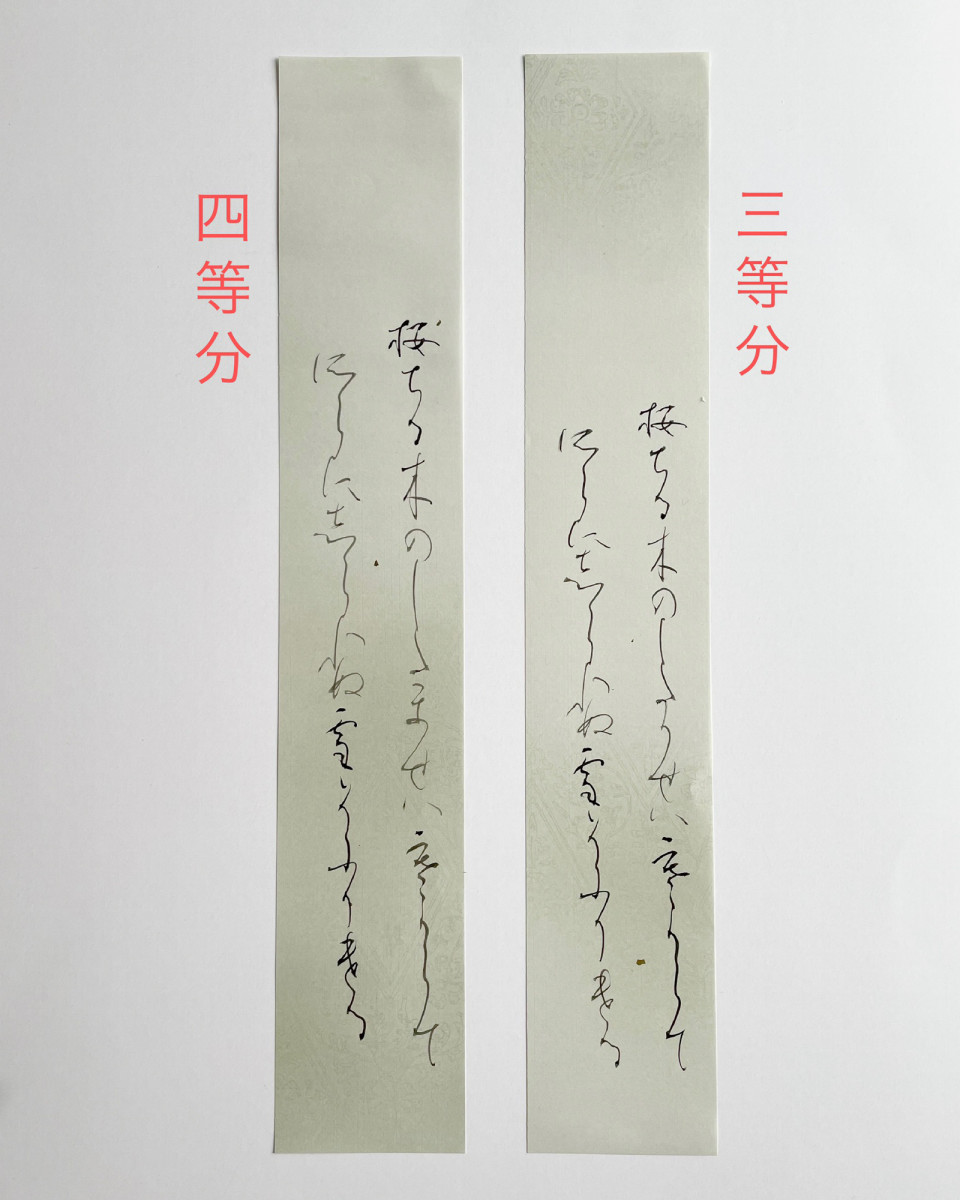 三等分
桜ちる木のしたかせハ寒からて
そらに志られぬ雪そふりける
桜ちる木のしたかせハ寒からて
そらに志られぬ雪そふりける
四等分